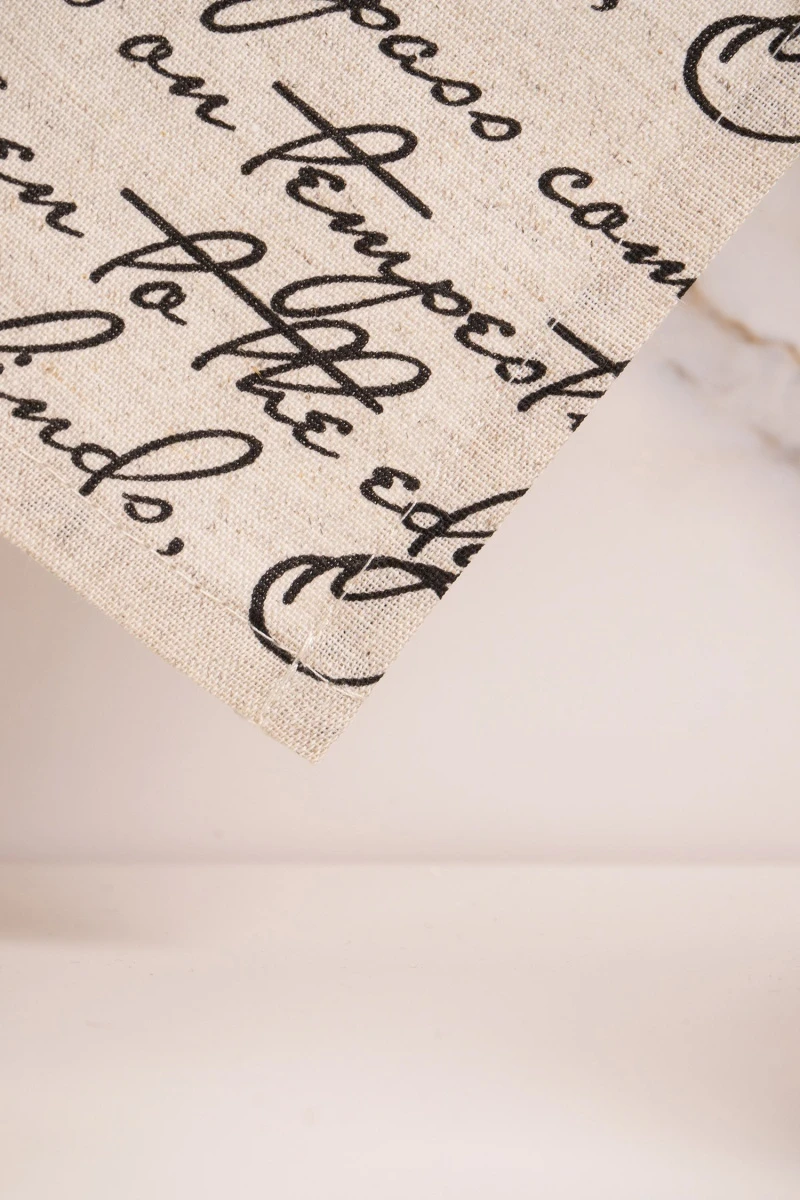 pass com
on tempest
en to the edg
inds,